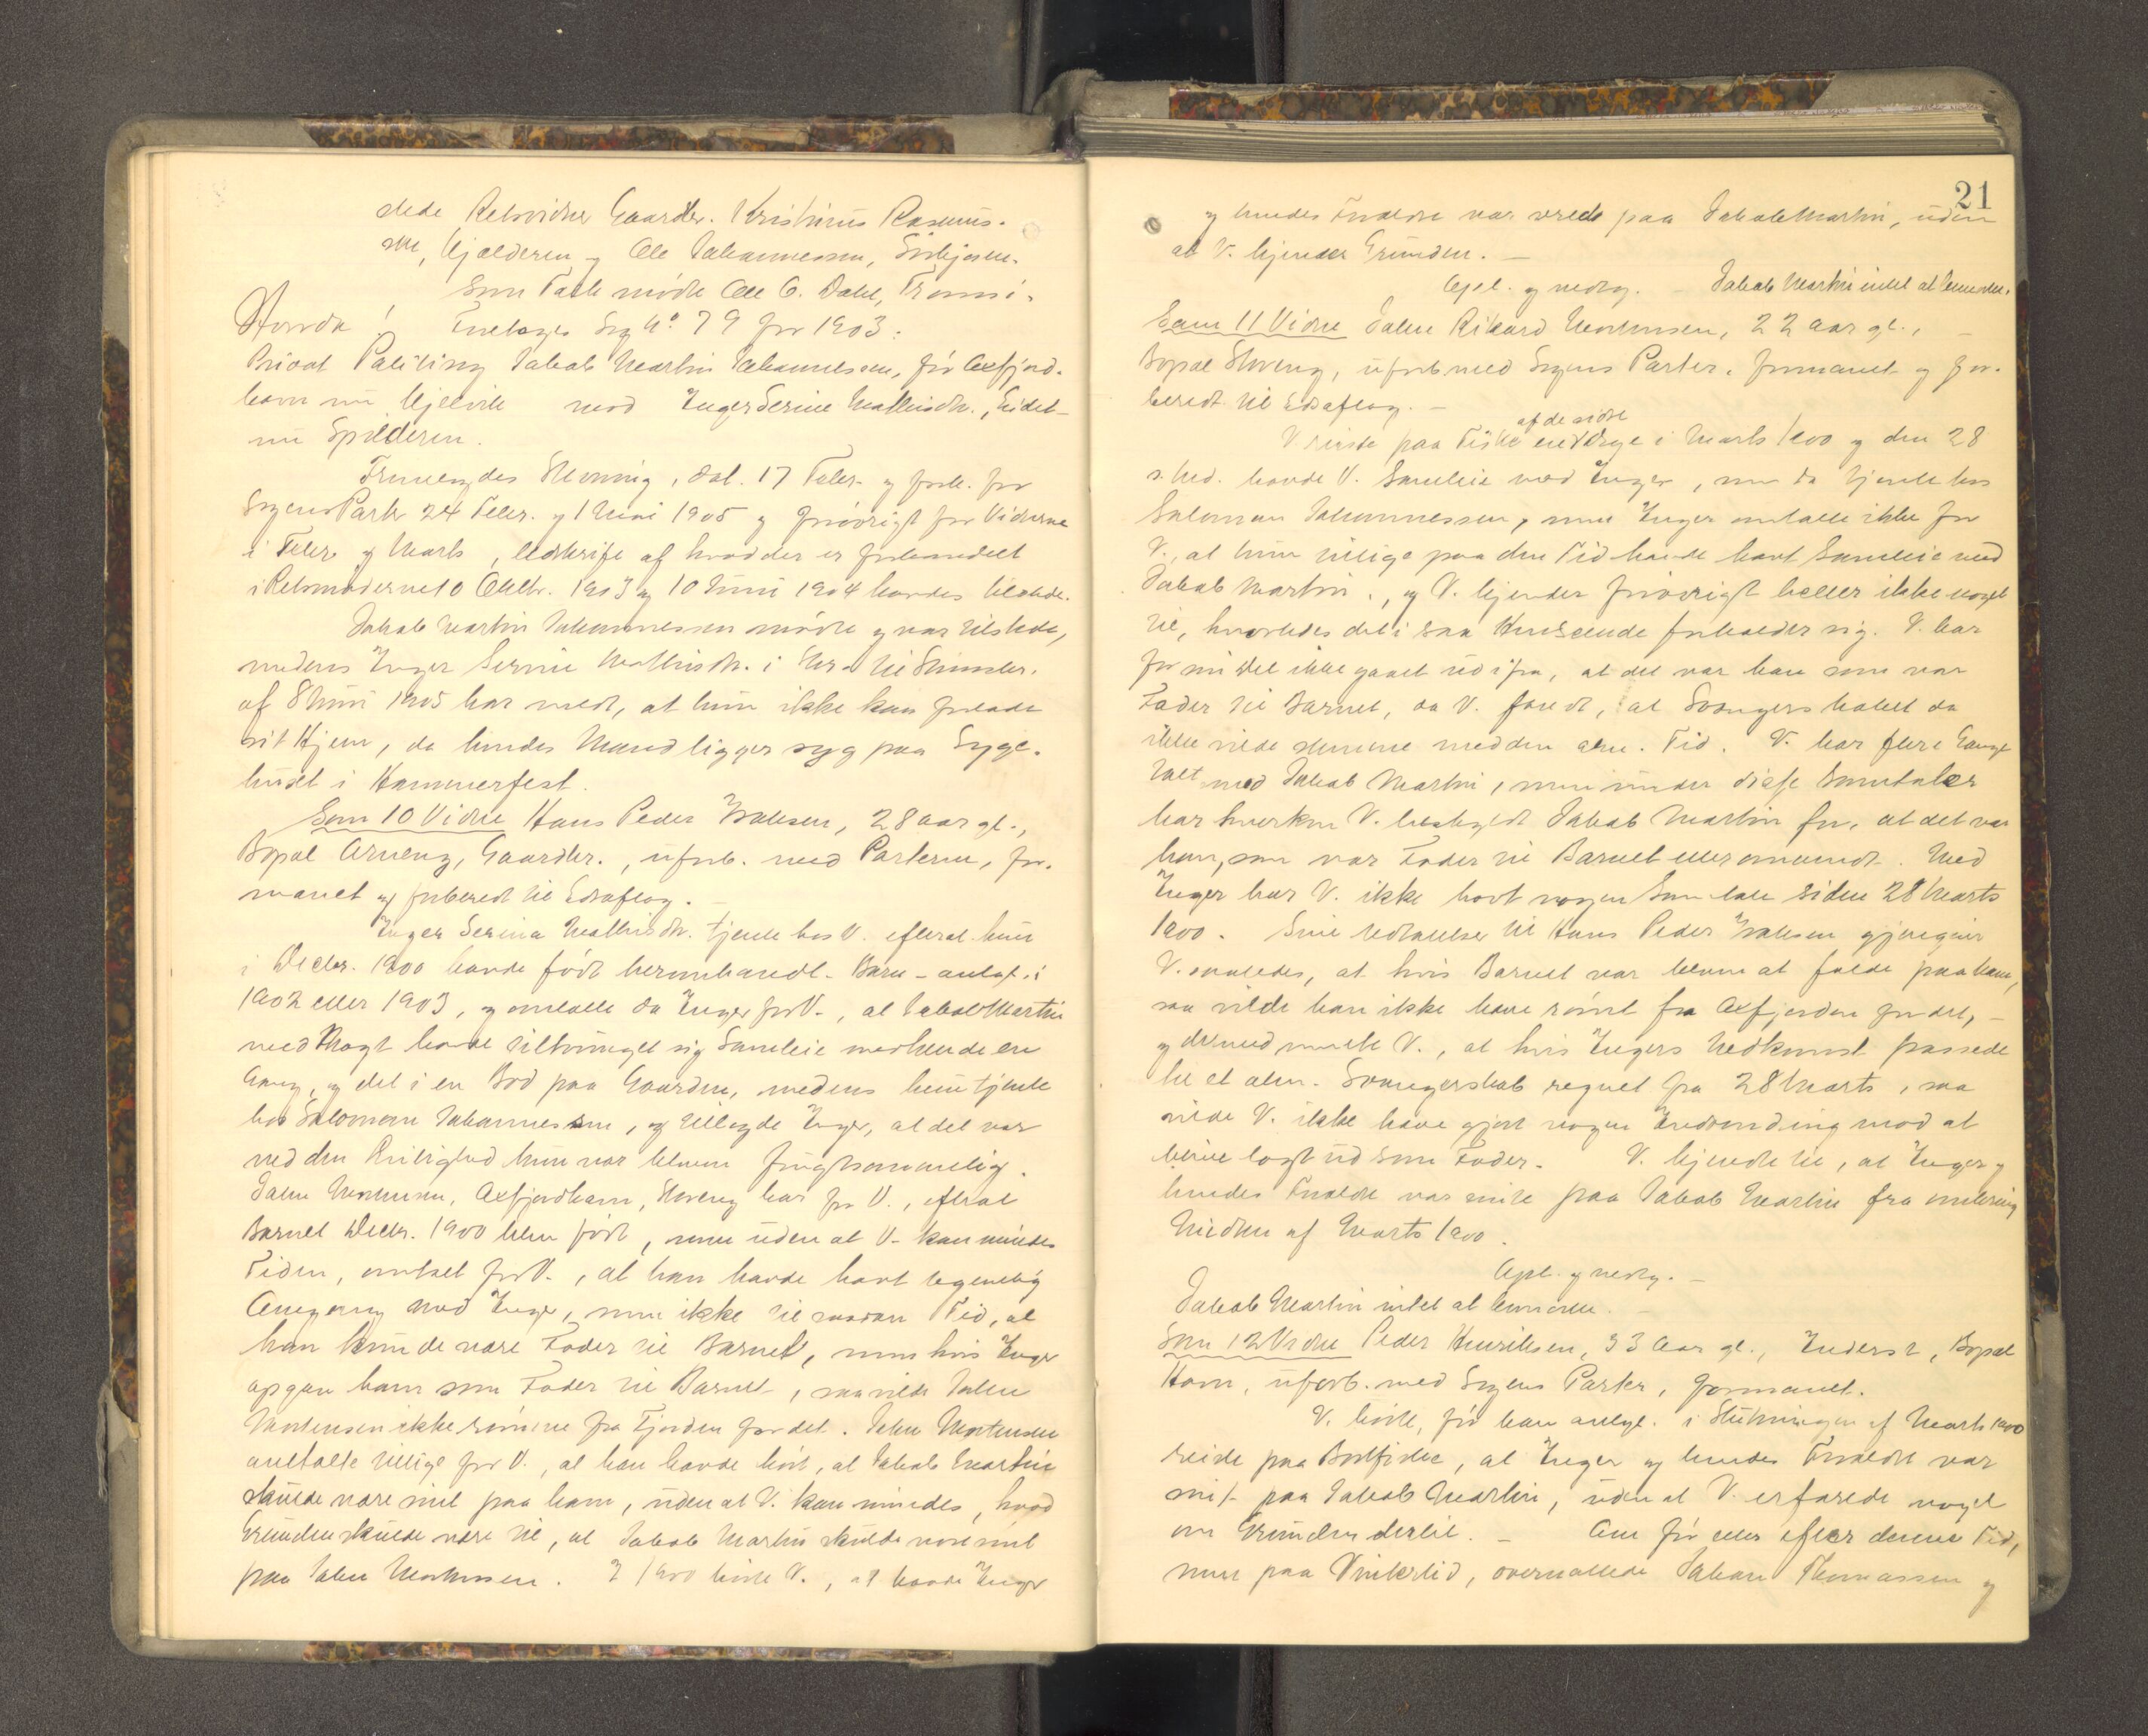 stede Retsvidner Gaardbr. Kristinus Rasmus-
sen, Kjelderen og Ole Johannessen, Sirkjosen.
Som Tolk mødte Ole G. Dahl, Tromsø.
Hvorda! Foretoges Sag No. 79 for 1903:
Privat Politisag Jakob Martin Johannessen, før Oxfjord-
havn nu Kjelvik mod Inger Serine Mathisdtr., Eidet
nu Spilderen.
Fremlagdes Stevning, dat. 17 Febr. og fork. for
Sagens Parter 24 Febr. og 1 Mai 1905 og forøvrigt for Vidnerne
i Febr. og Marts, Udskrift af hvad der er forhandlet
i Retsmøderne 10 Oktbr. 1903 og 10 Juni 1904 havdes tilstede.
Jakob Martin Johannessen mødte og var tilstede,
medens Inger Serine Mathisdtr. i Skr. til Skrivter.
af 8 Juni 1905 har meldt, at hun ikke kan forlade
sit Hjem, da hendes Mand ligger syg paa Syge-
huset i Hammerfest.
Som 10 Vidne Hans Peder Isaksen, 28 aar gl.,
Bopæl Arneng, Gaardbr., uforb. med Parterne, for-
manet og forberedt til Edsaflæg. –
Inger Serina Mathisdtr. tjente hos V. efterat hun
i Decbr. 1900 havde født heromhandl. Barn – antagl. i
1902 eller 1903, og omtalte da Inger for V., at Jakob Martin
med Magt havde tiltvunget sig Samleie med hende en
Gang, og det i en Bod paa Gaarden, medens hun tjente
hos Salomon Johannessen, og tillagde Inger, at det var
ved den Leilighed hun var bleven frugtsommelig.
Johan Mortensen, Oxfjordhavn, Storeng har for V., efterat
Barnet Decbr. 1900 blev født, men uden at V. kan mindes
Tiden, omtalt for V., at han havde havt legemlig
Omgang med Inger, men ikke til saadan Tid, at
han kunde være Fader til Barnet, men hvis Inger
opgav ham som Fader til Barnet, saa vilde Johan
Mortensen ikke rømme fra Fjorden for det. Johan Mortensen
omtalte tillige for V., at han havde hørt, at Jakob Martin
skulde være sint paa ham, uden at V. kan mindes, hvad
Grunden skulde være til, at Jakob Martin skulde være sint
paa Johan Mortensen. I 1900 hørte V., at baade Inger
21
og hendes Forældre var vrede paa Jakob Martin, uden
at V. kjender Grunden. –
Opl. og vedtg. – Jakob Martin intet at bemærke.
Som 11 Vidne Johan Rikard Mortensen, 22 aar gl., –
Bopæl Storeng, uforb. med Sagens Parter, formanet og for-
beredt til Edsaflæg. –
af de sidste
V. reiste paa Fiske en Dage i Marts 1900 og den 28
s. Md. havde V. Samleie med Inger, som da tjente hos
Salomon Johannessen, men Inger omtalte ikke for
V., at hun tillige paa den Tid havde havt Samleie med
Jakob Martin, og V. kjender forøvrigt heller ikke noget
til, hvorledes det i saa Henseende forholder sig. V. har
for sin Del ikke gaaet ud ifra, at det var han som var
Fader til Barnet, da V. fandt, at Svangerskabet da
ikke vilde stemme med den alm. Tid. V. har flere Gange
talt med Jakob Martin, men under disse Samtaler
har hverken V. beskyldt Jakob Martin for, at det var
han, som var Fader til Barnet eller omvendt. Med
Inger har V. ikke havt nogen Samtale siden 28 Marts
1900. Sine Udtalelser til Hans Peder Isaksen gjengiver
V. saaledes, at hvis Barnet var bleven at falde paa ham,
saa vilde han ikke have rømt fra Oxfjorden for det, –
og dermed mente V., at hvis Ingers Nedkomst passede
til et alm. Svangerskab regnet fra 28 Marts, saa
vilde V. ikke have gjort nogen Indvending mod at
blive lagt ud som Fader. V. kjendte til, at Inger og
hendes Forældre var sinte paa Jakob Martin fra omkring
Midten af Marts 1900.
Opl. og vedtg. –
Jakob Martin intet at bemærke. –
Som 12 Vidne Peder Henriksen, 33 Aar gl., Inderst, Bopæl
Havn, uforb. med Sagens Parter, formanet.
V. hørte, før han antagl. i Slutningen af Marts 1900
reiste paa Bortfiske, at Inger og hendes Forældre var
sint paa Jakob Martin, uden at V. erfarede noget
om Grunden dertil. – Om før eller efter denne Tid,
men paa Vinterstid, overnattede Johan Thomassen og